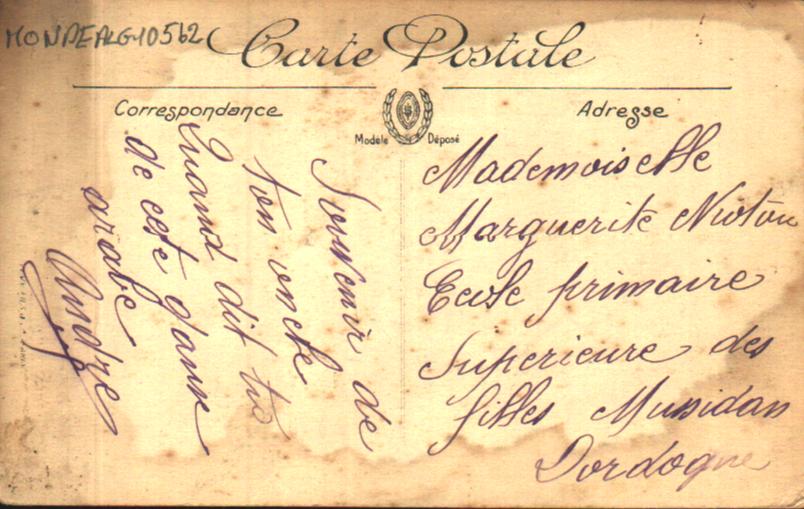 MONDEALG10562
Carte Postale
Correspondance
Adresse
Modèle Déposé
Souvenir de
ton oncle
Quand dit tu
de cete
arabe
André
Mademoiselle
Marguerite
Ecole primaire
Superieure des
filles Mussidan
Dordogne